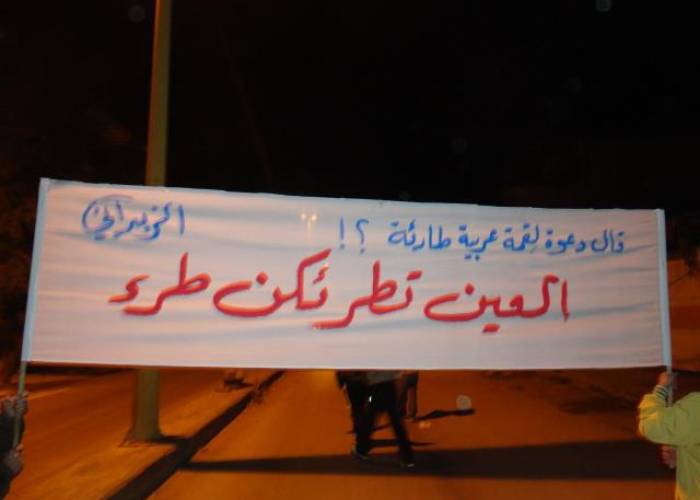 قال دعوة لقمة عربية طارئة ؟! الزبداني
العين تطرئكن طرء